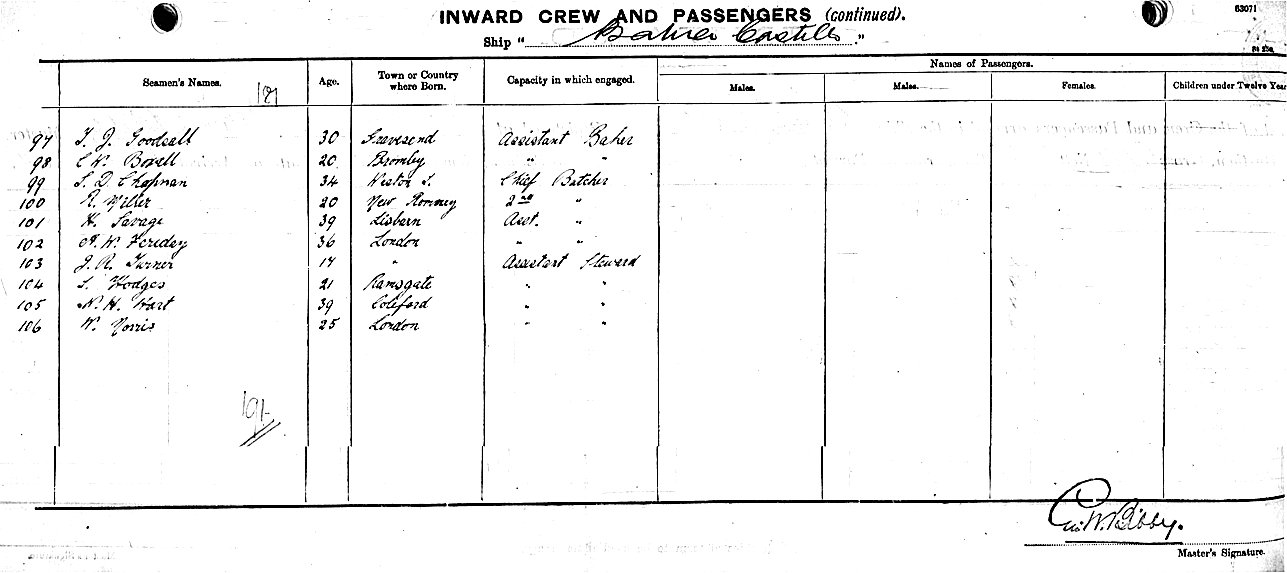 63071
INWARD CREW AND PASSENGERS (continued).
Ship " Bahia Castillo ."
Seamen's Names. Age. Town or Country where Born. Capacity in which engaged. Names of Passengers.
Males. Males. Females. Children under Twelve Year
97 T. J. Goodsall 30 Gravesend Assistant Baker
98 C W. Boxall 20 Bromley " "
99 S. D. Chapman 34 Weston S. Chief Butcher
100 R. Miller 20 New Romney 2nd "
101 H. Savage 39 Lisburn Asst. "
102 A. W. Feriday 36 London " "
103 J. R. Turner 17 " Assistant Steward
104 S. Hodges 21 Ramsgate " "
105 W. H. Hart 39 Coleford " "
106 W. Norris 25 London " "
W. Bibby.
Master's Signature.